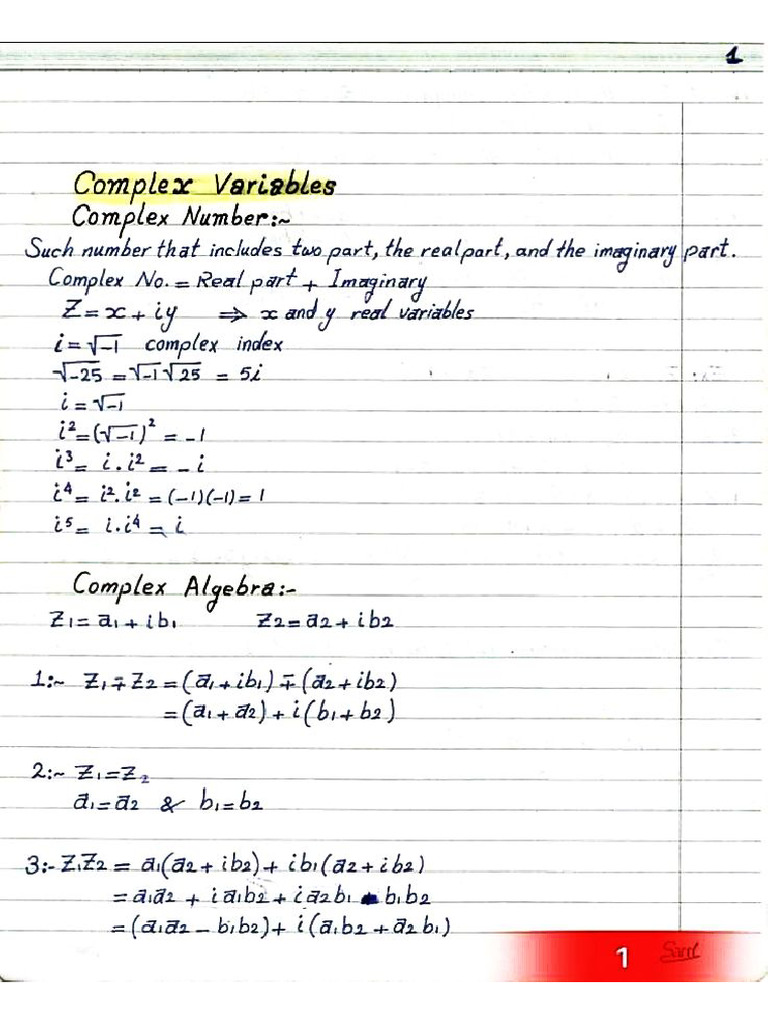 1
Complex Variables
Complex Number:~
Such number that includes two part, the real part, and the imaginary part.
Complex No. = Real part + Imaginary
Z = x + iy ⇒ x and y real variables
i = √-1 complex index
√-25 = √-1 √25 = 5i
i = √-1
i² = (√-1)² = -1
i³ = i . i² = - i
i⁴ = i² . i² = (-1)(-1) = 1
i⁵ = i . i⁴ = i
Complex Algebra:-
Z₁ = a₁ + ib₁ Z₂ = a₂ + ib₂
1:~ Z₁ ∓ Z₂ = (a₁ + ib₁) ∓ (a₂ + ib₂)
= (a₁ + a₂) + i(b₁ + b₂)
2:~ Z₁ = Z₂
a₁ = a₂ & b₁ = b₂
3:- Z₁Z₂ = a₁(a₂ + ib₂) + ib₁(a₂ + ib₂)
= a₁a₂ + ia₁b₂ + ia₂b₁ - b₁b₂
= (a₁a₂ - b₁b₂) + i(a₁b₂ + a₂b₁)
1